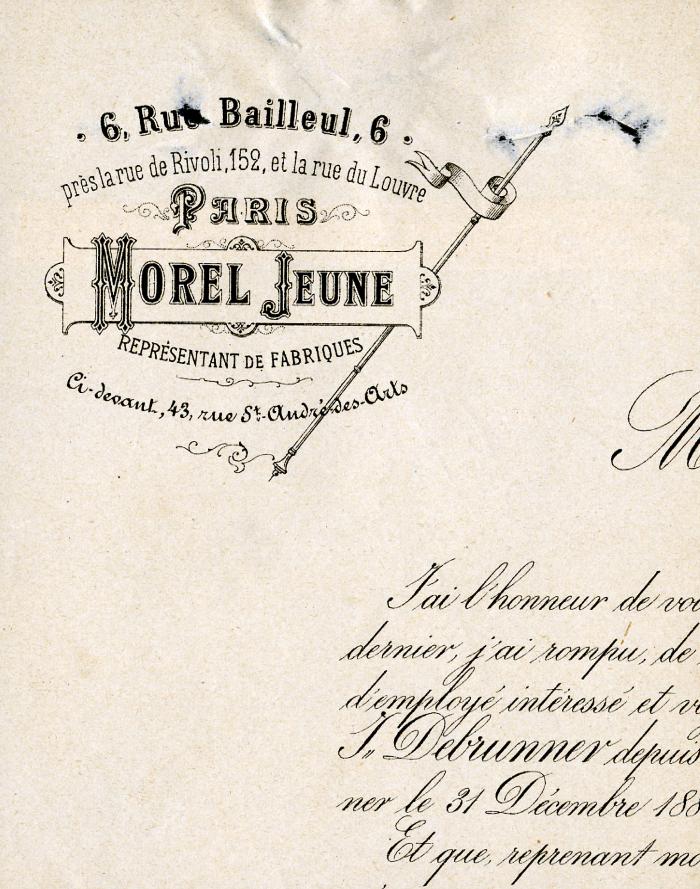 . 6, Rue Bailleul, 6 .
près la rue de Rivoli, 152, et la rue du Louvre
PARIS
MOREL JEUNE
REPRÉSENTANT DE FABRIQUES
Ci-devant, 43, rue St-André-des-Arts
M
J'ai l'honneur de vou
dernier, j'ai rompu, de
d'employé intéressé et v
J,, Debrunner depuis
ner le 31 Décembre 188
Et que, reprenant m